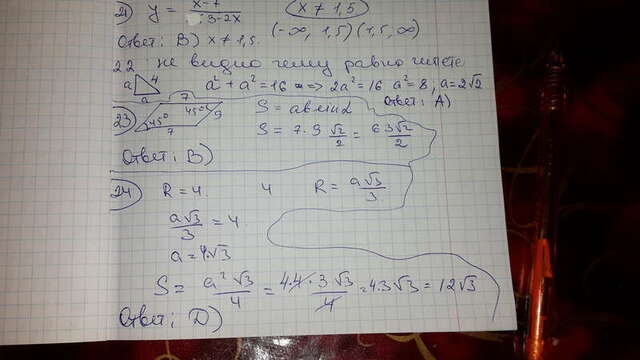 21) y = x-7 / 3-2x (x ≠ 1,5)
Ответ: В) x ≠ 1,5. (-∞, 1,5) (1,5, ∞)
22: не видно чему равно
a 4 a a² + a² = 16 => 2a² = 16 a² = 8; a = 2√2
Ответ: А)
23) 7 45° 45° 9 7 S = ab sin α
S = 7·9 √2/2 = 63√2/2
Ответ: В)
24 R = 4. 4 R = a√3/3
a√3/3 = 4
a = 4√3
S = a²√3/4 = 4·4·3√3/4 = 4·3√3 = 12√3
Ответ: D)